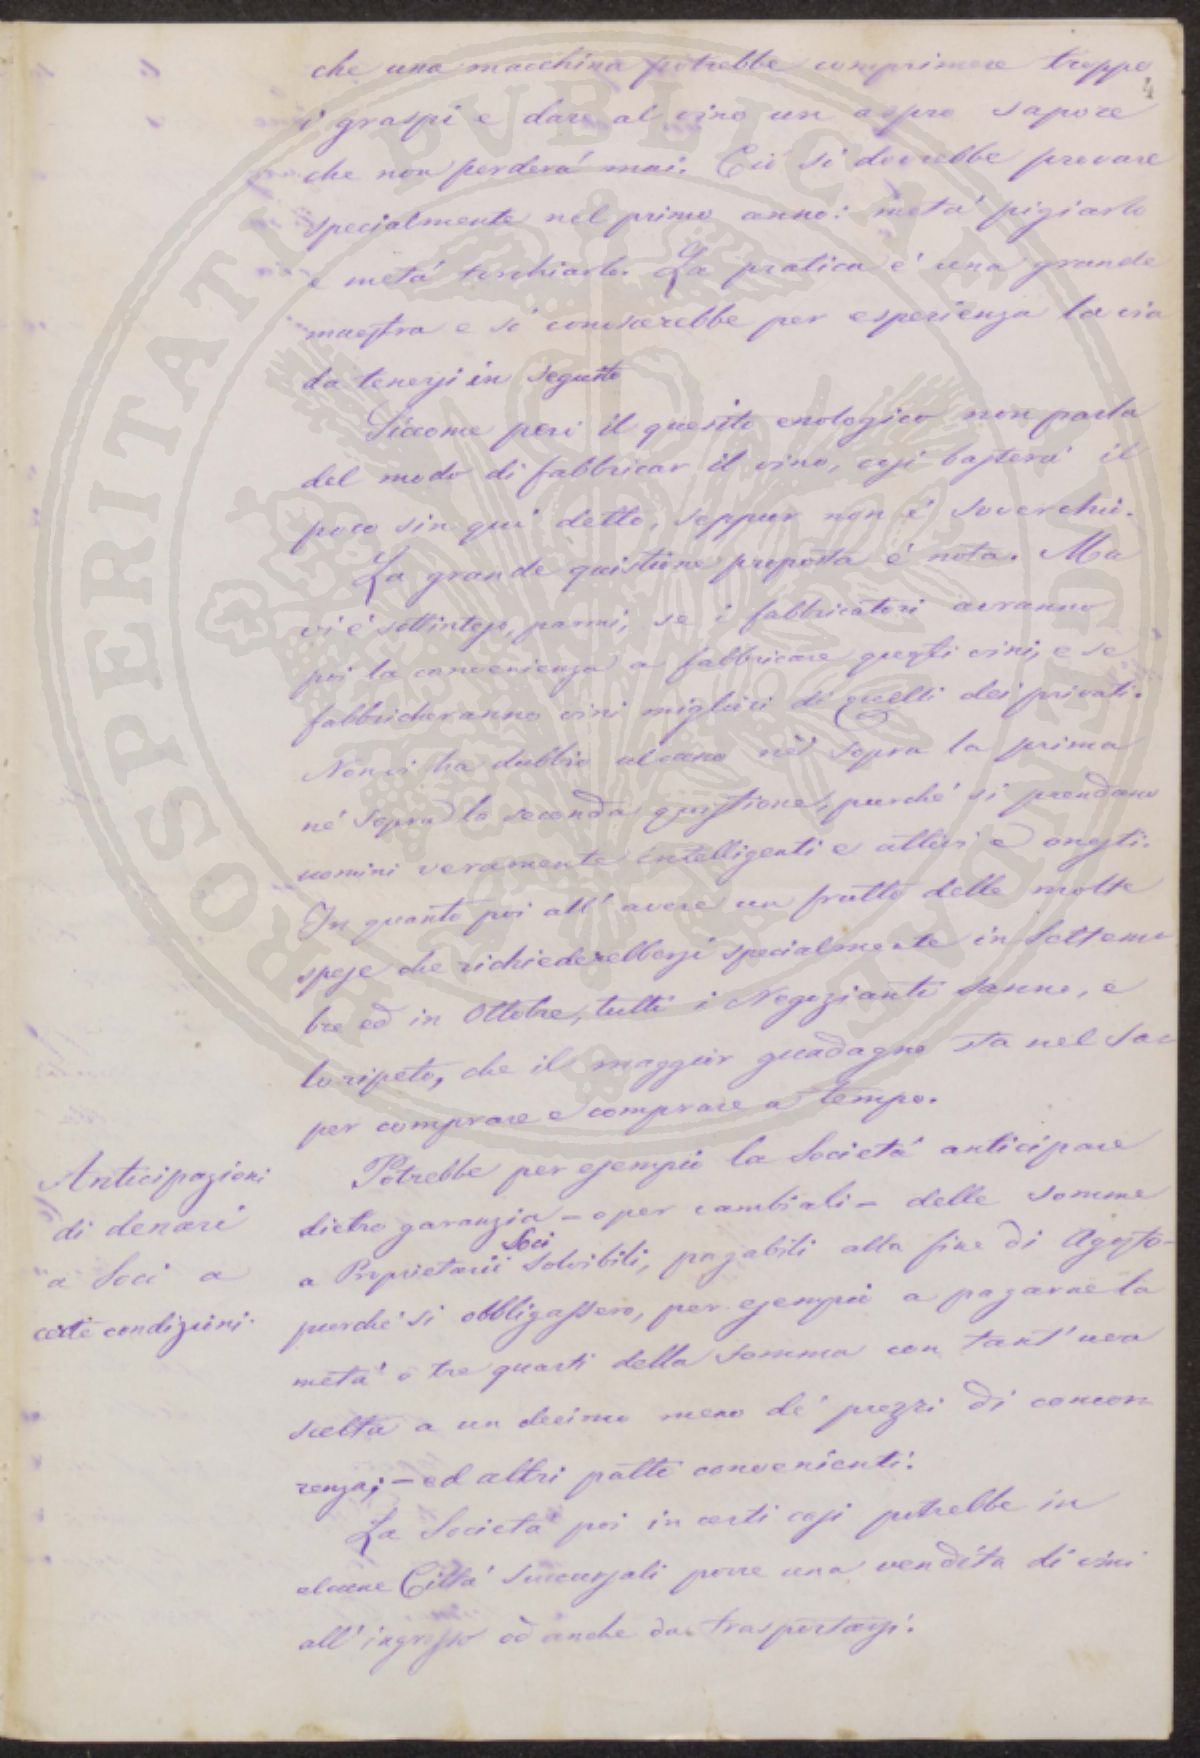 4
che una macchina potrebbe comprimere troppo
i graspi e dare al vino un aspro sapore
che non perderá mai. Ció si dovrebbe provare
specialmente nel primo anno: metá pigiarlo
e metá torchiarlo. La pratica é una grande
maestra e si conoscerebbe per esperienza la via
da tenersi in seguito
Siccome peró il quesito enologico non parla
del modo di fabbricar il vino, cosi basterá il
poco sin qui detto, seppur non é soverchio.
La grande quistione proposta é nota. Ma
vi é sottinteso, parmi, se i fabbricatori avranno
poi la convenienza a fabbricare questi vini, e se
fabbricheranno vini migliori di quelli dei privati.
Non vi ha dubbio alcuno né sopra la prima
né sopra la seconda quistione, purché si prendano
uomini veramente intelligenti e attivi e onesti.
In quanto poi all' avere un frutto delle molte
spese che richiederebbersi specialmente in Settem-
bre ed in Ottobre, tutti i Negozianti sanno, e
lo ripeto, che il maggior guadagno sta nel sa-
per comprare e comprare a tempo.
Anticipazioni
di denari
a Soci a
certe condizioni.
Potrebbe per esempio la Societá anticipare
dietro garanzia - o per cambiali - delle somme
a Proprietarii Soci solvibili, pagabili alla fine di Agosto-
purché si obbligassero, per esempio a pagarne la
metá o tre quarti della somma con tant' uva
scelta a un decimo meno de' prezzi di concor-
renza; - ed altri patti convenienti.
La Societá poi in certi casi potrebbe in
alcune Cittá succursali porre una vendita di vini
all' ingrosso od anche da trasportarsi.